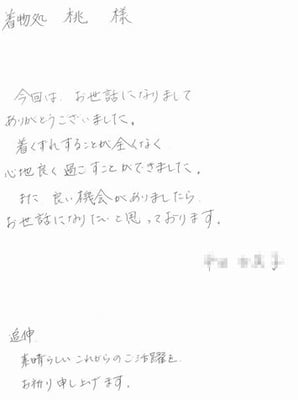 着物処 桃 様
今回は、お世話になりまして
ありがとうございました。
着くずれすることが全くなく
心地良く過ごすことができました。
また、良い機会がありましたら
お世話になりたいと思っております。
追伸
素晴らしいこれからのご活躍を
お祈り申し上げます。